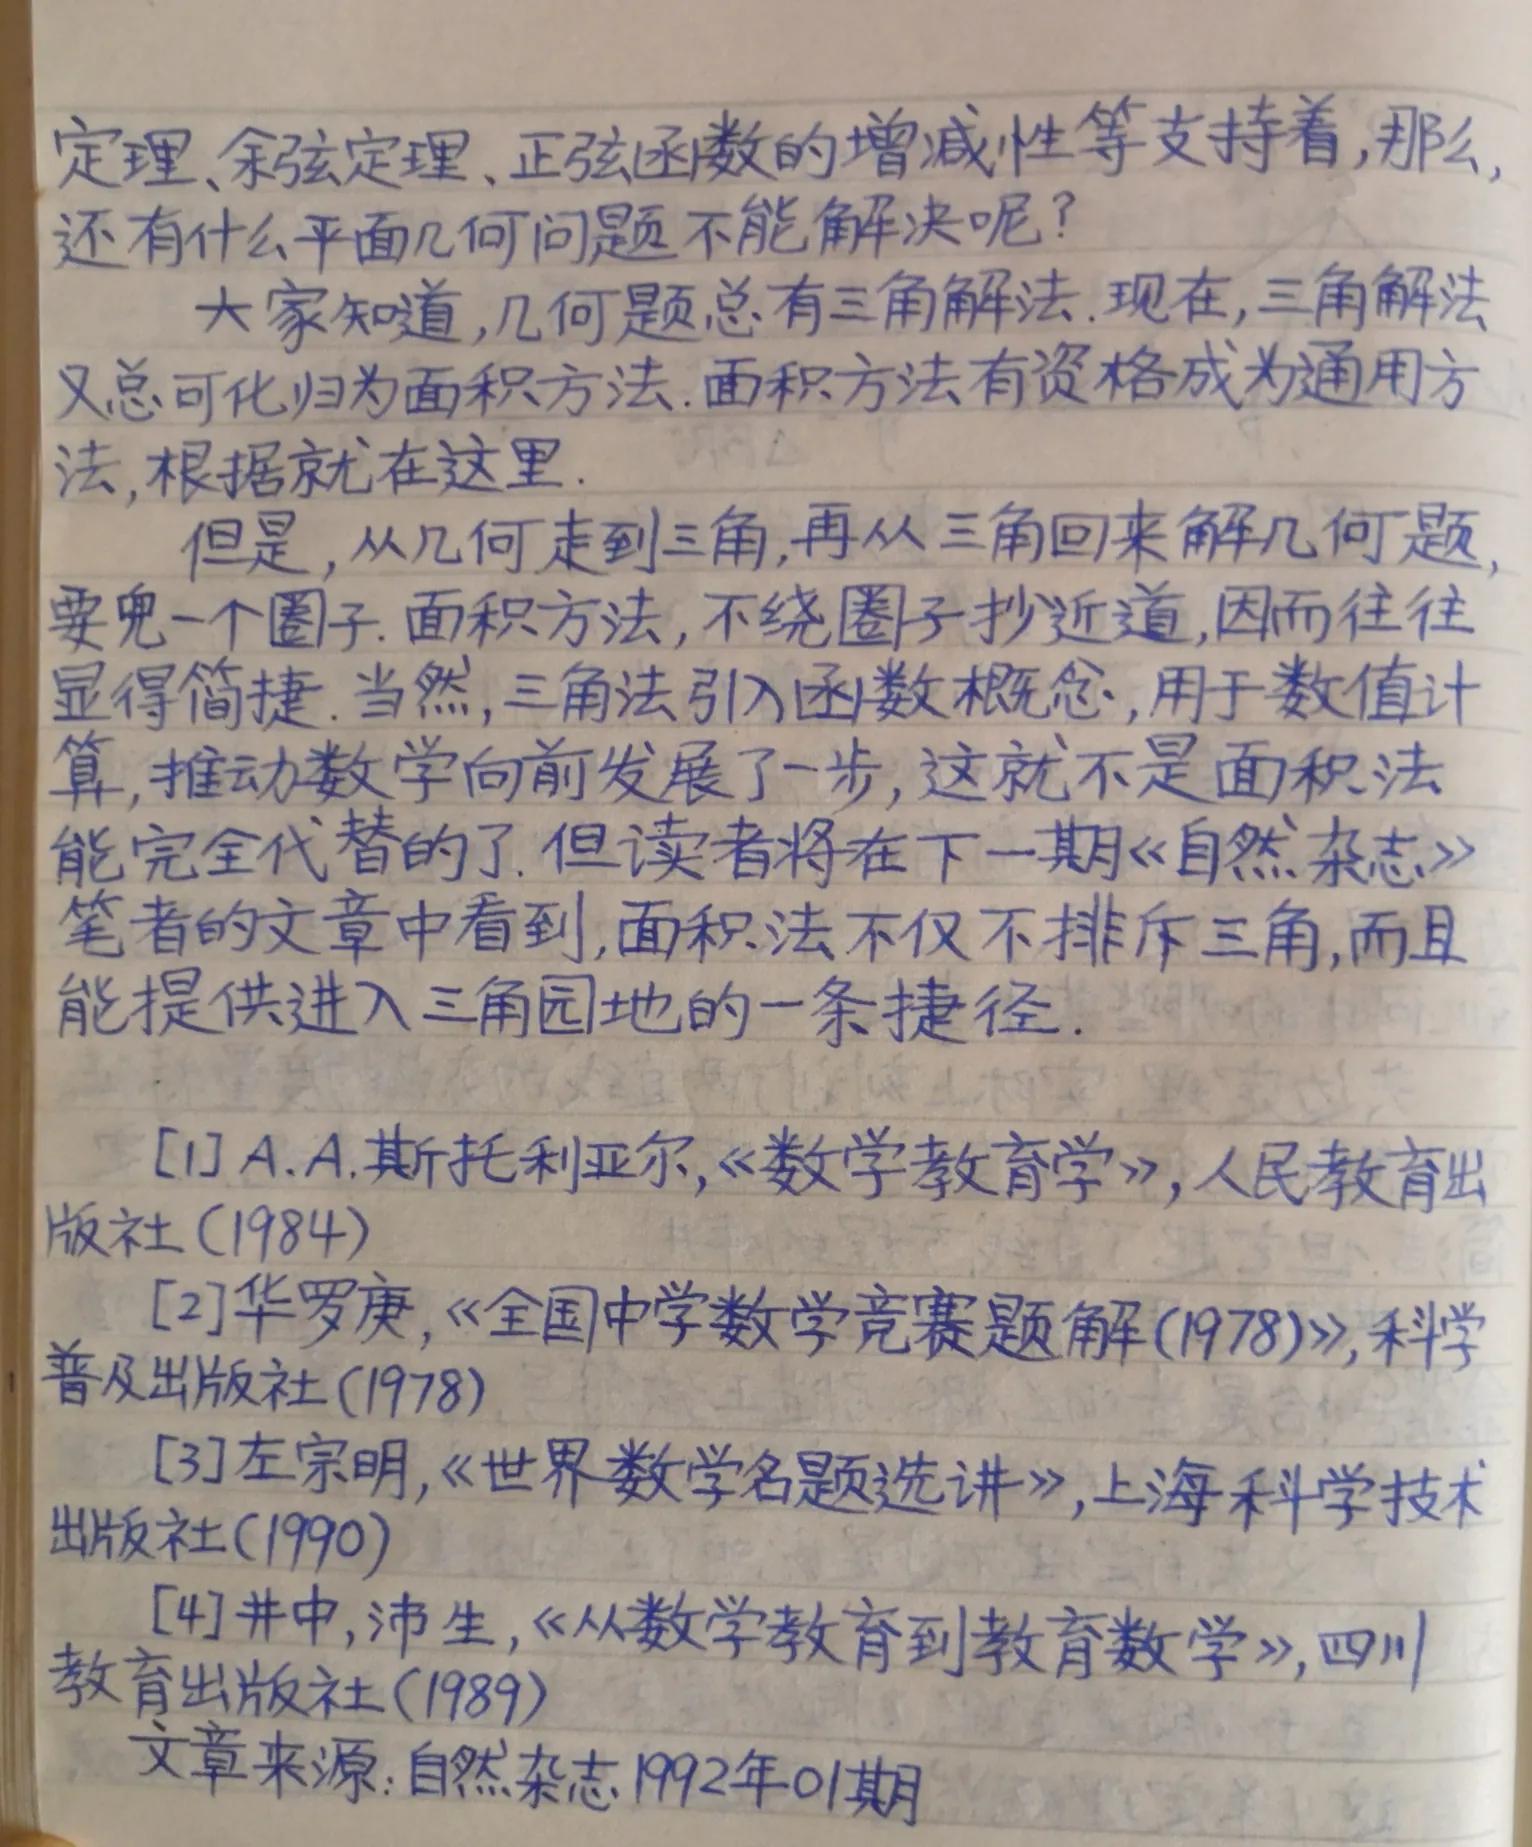 定理、余弦定理、正弦函数的增减性等支持着,那么,
还有什么平面几何问题不能解决呢?
大家知道,几何题总有三角解法.现在,三角解法
又总可化归为面积方法.面积方法有资格成为通用方
法,根据就在这里.
但是,从几何走到三角,再从三角回来解几何题,
要兜一个圈子.面积方法,不绕圈子抄近道,因而往往
显得简捷.当然,三角法引入函数概念,用于数值计
算,推动数学向前发展了一步,这就不是面积法
能完全代替的了.但读者将在下一期《自然杂志》
笔者的文章中看到,面积法不仅不排斥三角,而且
能提供进入三角园地的一条捷径.
[1]A.A.斯托利亚尔,《数学教育学》,人民教育出
版社(1984)
[2]华罗庚,《全国中学数学竞赛题解(1978)》,科学
普及出版社(1978)
[3]左宗明,《世界数学名题选讲》,上海科学技术
出版社(1990)
[4]井中,沛生,《从数学教育到教育数学》,四川
教育出版社(1989)
文章来源:自然杂志1992年01期